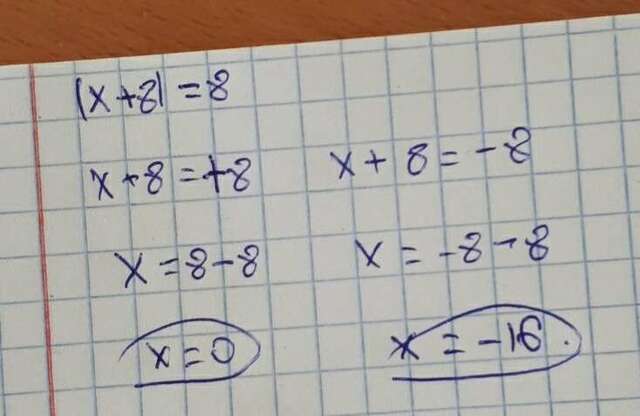 |x+8| = 8
x+8 = +8 x + 8 = -8
x = 8-8 x = -8-8
x = 0 x = -16.